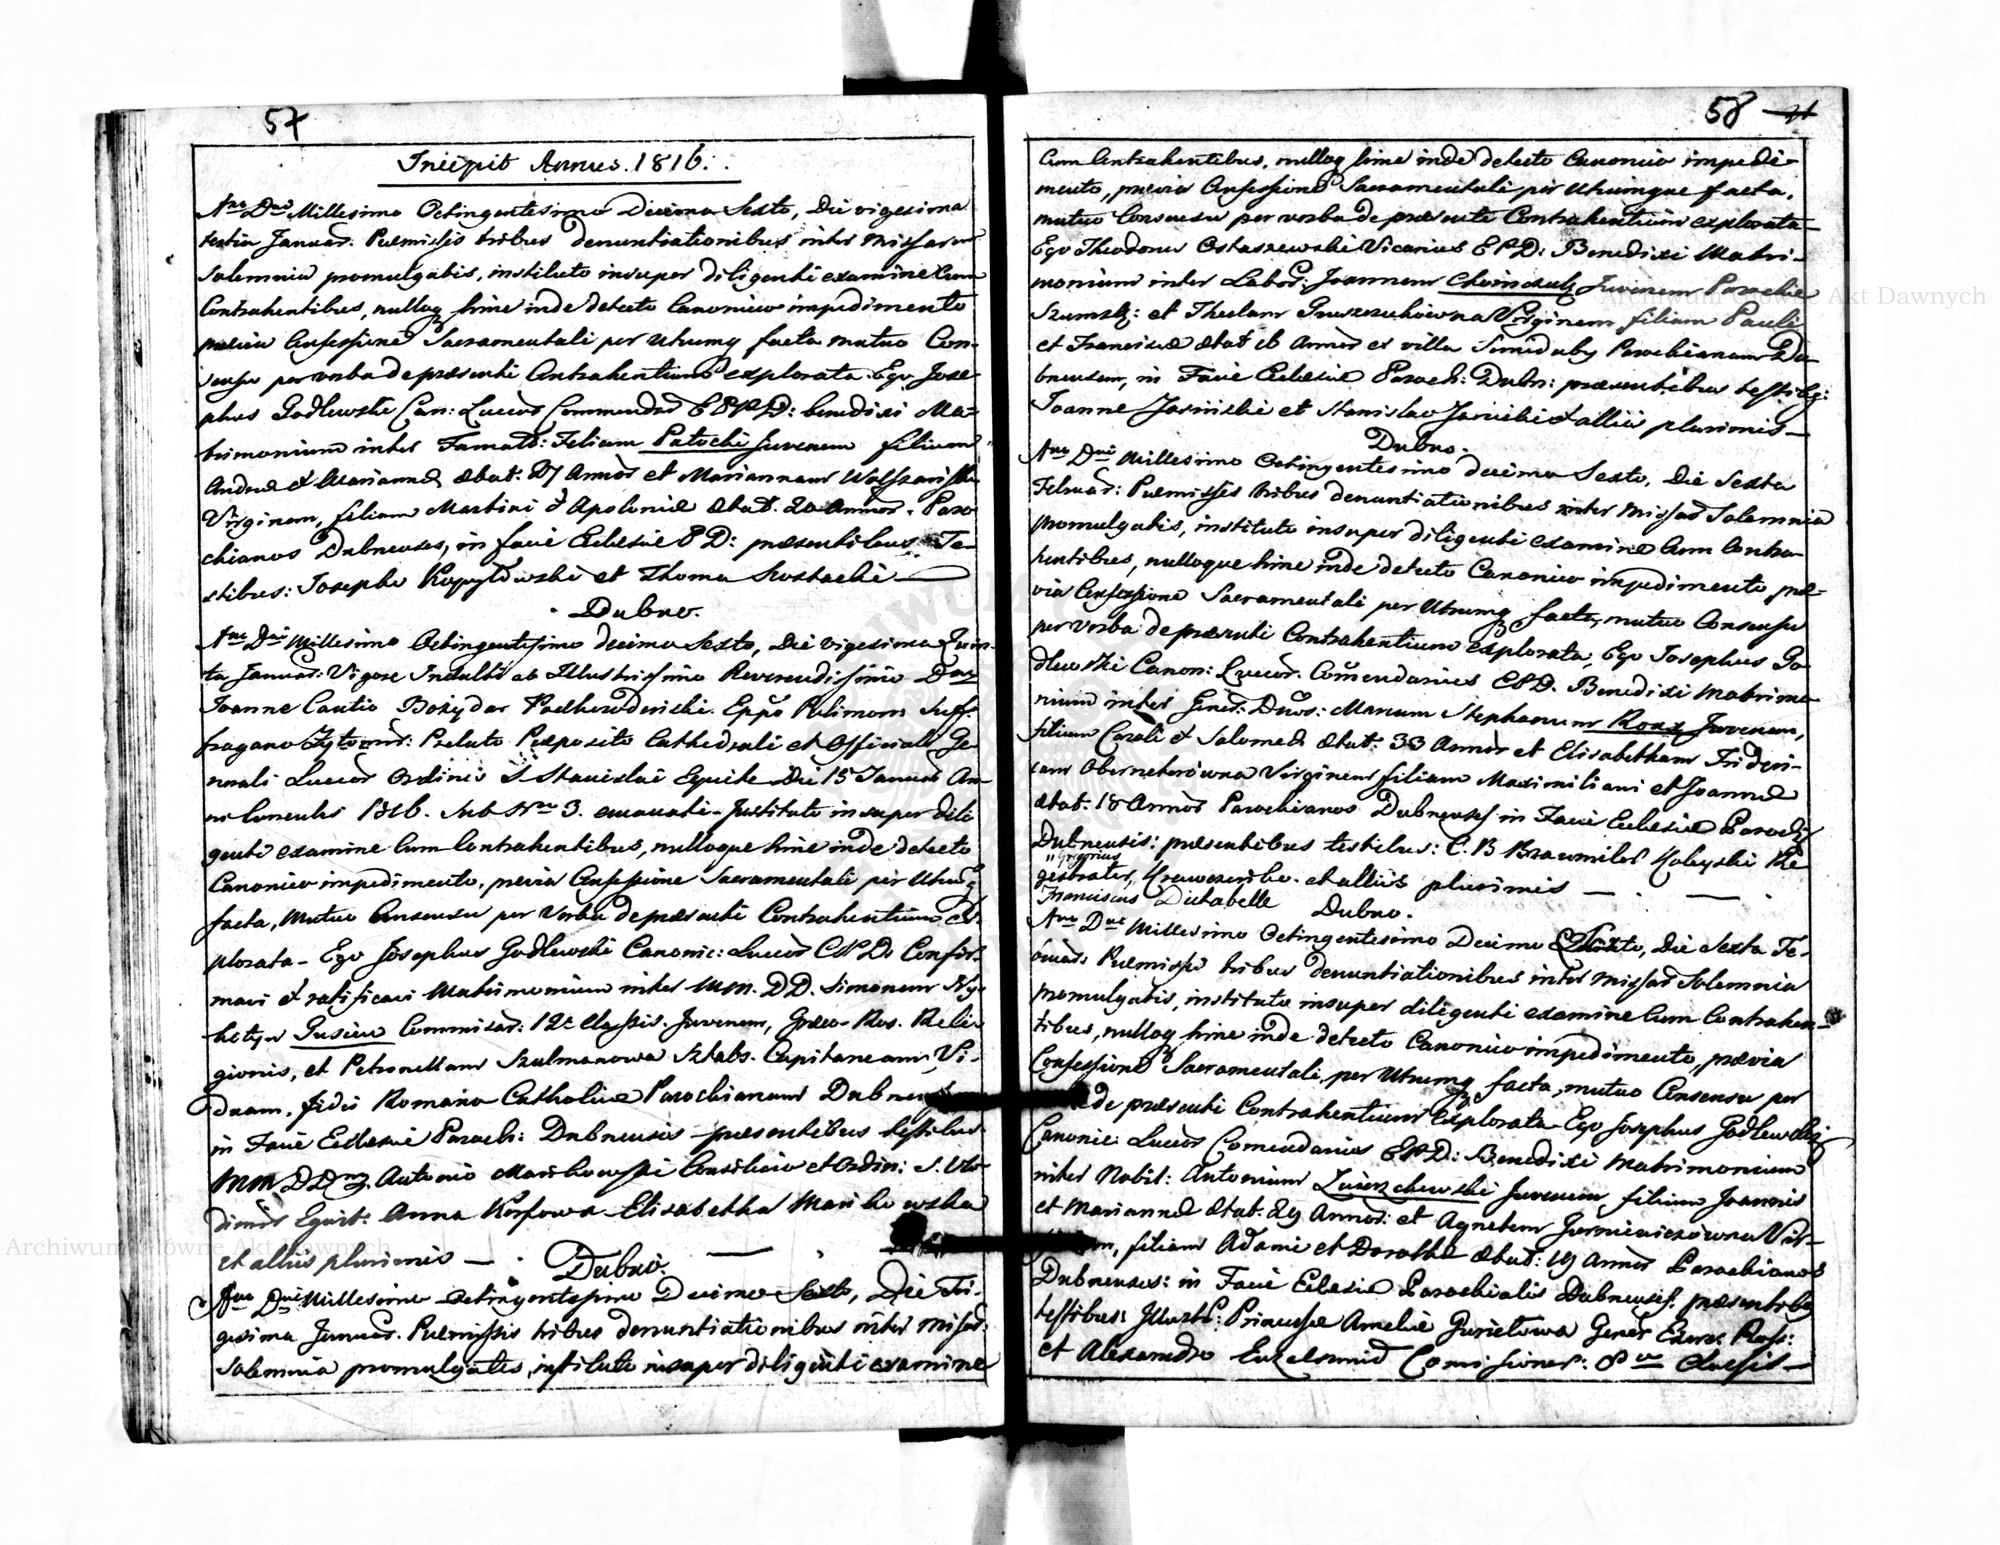 57
Incipit Annus. 1816.
Ano Dni Millesimo Octingentesimo Decimo Sexto, Die vigesima
tertia Januar: Præmissis tribus denuntiationibus inter Missarum
Solemnia promulgatis, instituto insuper diligenti examine Cum
Contrahentibus, nulloq hinc inde detecto Canonico impedimento
prævia Confessione Sacramentali per utrumq facta mutuo Con-
sensu per verba de præsenti Contrahentium explorata Ego Jose-
phus Godlewski Can: Luceor Commendar E P D: benedixi Ma-
trimonium inter Famat: Felicem Patocki Juvenem filium
Andreæ et Mariannæ ætat: 27 Annor et Mariannam
Virginem, filiam Martini et Apoloniæ ætat. 20 Annor. Paro
chianos Dubnenses, in facie Ecclesiæ P D: præsentibus Te-
stibus: Josepho Kopytowski et Thoma
Dubno.
Ano Dni Millesimo Octingentesimo decimo Sexto, Die vigesima Quin-
ta Januar: Vigore Indulti ab Illustrissimo Reverendissimo Dno
Joanne Cantio Bożydar Podhorodeński Eppo Suff-
fragano Zytomir: Prelato Preposito Cathedrali et Officiali Ge
nerali Luceor Ordinis S Stanislai Equite Die 15 Januar An-
no Currentis 1816. Sub Nro 3. emanati - Instituto insuper dili
genti examine Cum Contrahentibus, nulloque hinc inde detecto
Canonico impedimento, prævia Confessione Sacramentali per Utrumq
facta, Mutuo Consensu per Verba de præsenti Contrahentium ex-
plorata - Ego Josephus Godlewski Canonic: Luceor C P D Confir-
mavi et ratificavi Matrimonium inter MM. DD. Simonem Ny-
kityn Gusiew Commisar: 12æ Classis. Juvenem, Græco-Ros. Reli-
gionis, et Petronellam Szulmanowa Sztabs. Capitaneam, Vi-
duam, fidei Romano Catholicæ Parochianam
in Facie Ecclesiæ Paroch: Dubnensis præsentibus testibus
MM DD. Antonio Marikowski Consiliario et Ordin: S. Vlo-
dimir Equit: Anna Korfowa Elisabetha Marikowska
et alliis plurimis —
Dubno.
Ano Dni Millesimo Octingentesimo Decimo Sexto, Die Tri-
gesima Januar. Præmissis tribus denuntiationibus inter Missar:
Solemnia promulgatis, instituto insuper diligenti examine
58
Cum Contrahentibus, nulloq hinc inde detecto Canonico impedi-
mento, prævia Confessione Sacramentali per utrumque facta,
mutuo Consensu per verba de præsenti Contrahentium explorata
Ego Theodorus Ostaszewski Vicarius E P D: Benedixi Matri-
monium inter Labor: Joannem Juvenem Parochiæ
et Theclam Virginem filiam Pauli
et Franciscæ ætat Annor ex villa Parochianam Du-
bnensem, in Facie Ecclesiæ Paroch: Dubn: præsentibus testibq:
Joanne Jasinski et Stanislao et alliis plurimis —
Dubno.
Ano Dni Millesimo Octingentesimo decimo Sexto, Die Sexta
Februar: Præmissis tribus denuntiationibus inter Missar Solemnia
promulgatis, instituto insuper diligenti examine Cum Contra-
hentibus, nulloque hinc inde detecto Canonico impedimento præ-
via Confessione Sacramentali per Utrumq facta, mutuo Consensu
per verba de præsenti Contrahentium explorata, Ego Josephus Go-
dlewski Canon: Luceor. Comendarius E P D. Benedixi Matrimo-
nium inter Gener: Dnos: Stephanum Juvenem,
filium Caroli et Salomeæ ætat: 33 Annor et Elisabetham Frideri-
cam Virginem filiam Maximiliani et Joannæ
ætat: 18 Annor Parochianos Dubnenses in Facie Ecclesiæ Paroch
Dubnensis: præsentibus testibus: C. B. Re
Grigorius
gestrator, et alliis plurimis —
Franciscus
Dubno.
Ano Dni Millesimo Octingentesimo Decimo Sexto, Die Sexta Fe-
bruar: Præmissis tribus denuntiationibus inter Missar Solemnia
promulgatis, instituto insuper diligenti examine Cum Contrahen-
tibus, nulloq hinc inde detecto Canonico impedimento, prævia
Confessione Sacramentali, per Utrumq facta, mutuo Consensu per
de præsenti Contrahentium explorata Ego Josephus Godlewski
Canonic: Luceor Comendarius E P D: Benedixi Matrimonium
inter Nobil: Antonium Juvenem filium Joannis
et Mariannæ ætat: 29 Annor: et Agnetem Vir-
filiam Adami et Dorotheæ ætat: 19 Annor Parochianos
Dubnenses: in Facie Eclesiæ Parochialis Dubnensis. præsentibq
testibus: Illustr: Amelia Gener Exerc Ross:
et Alexandro Comissioner: 8væ Classis —
Archiwum Główne Akt Dawnych
Archiwum Główne Akt Dawnych